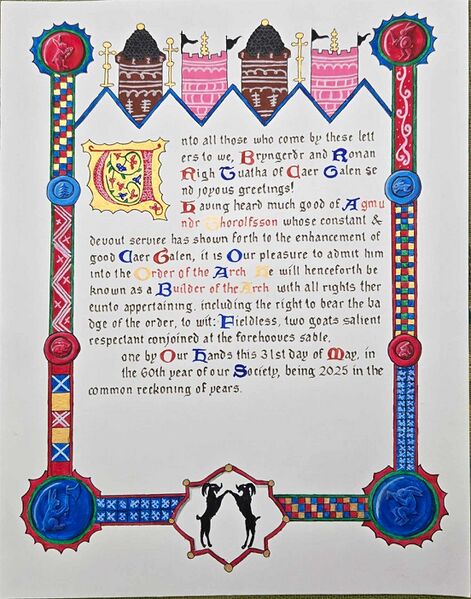 Unto all those who come by these lett
ers to we, Bryngerðr and Ronan
High Tuatha of Caer Galen se
nd joyous greetings!
Having heard much good of Agmu
ndr Thorolfsson whose constant &
devout service has shown forth to the enhancement of
good Caer Galen, it is Our pleasure to admit him
into the Order of the Arch He will henceforth be
known as a Builder of the Arch with all rights ther
eunto appertaining, including the right to bear the ba
dge of the order, to wit: Fieldless, two goats salient
respectant conjoined at the forehooves sable.
one by Our Hands this 31st day of May, in
the 60th year of our Society, being 2025 in the
common reckoning of years.